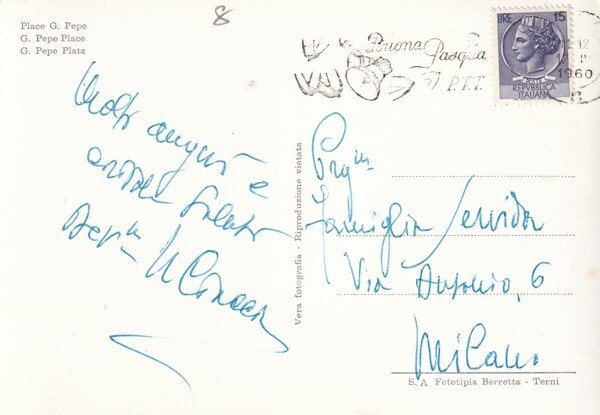 Place G. Pepe
G. Pepe Place
G. Pepe Platz
8
Buona
Pasqua
P.T.T.
LIRE 15
REPVBBLICA
ITALIANA
12
1960
Molti auguri e
saluti
Vera fotografia - Riproduzione vietata
Preg.ma
Famiglia Servidor
Via Antonio, 6
Milano
S. A Fototipia Berretta - Terni